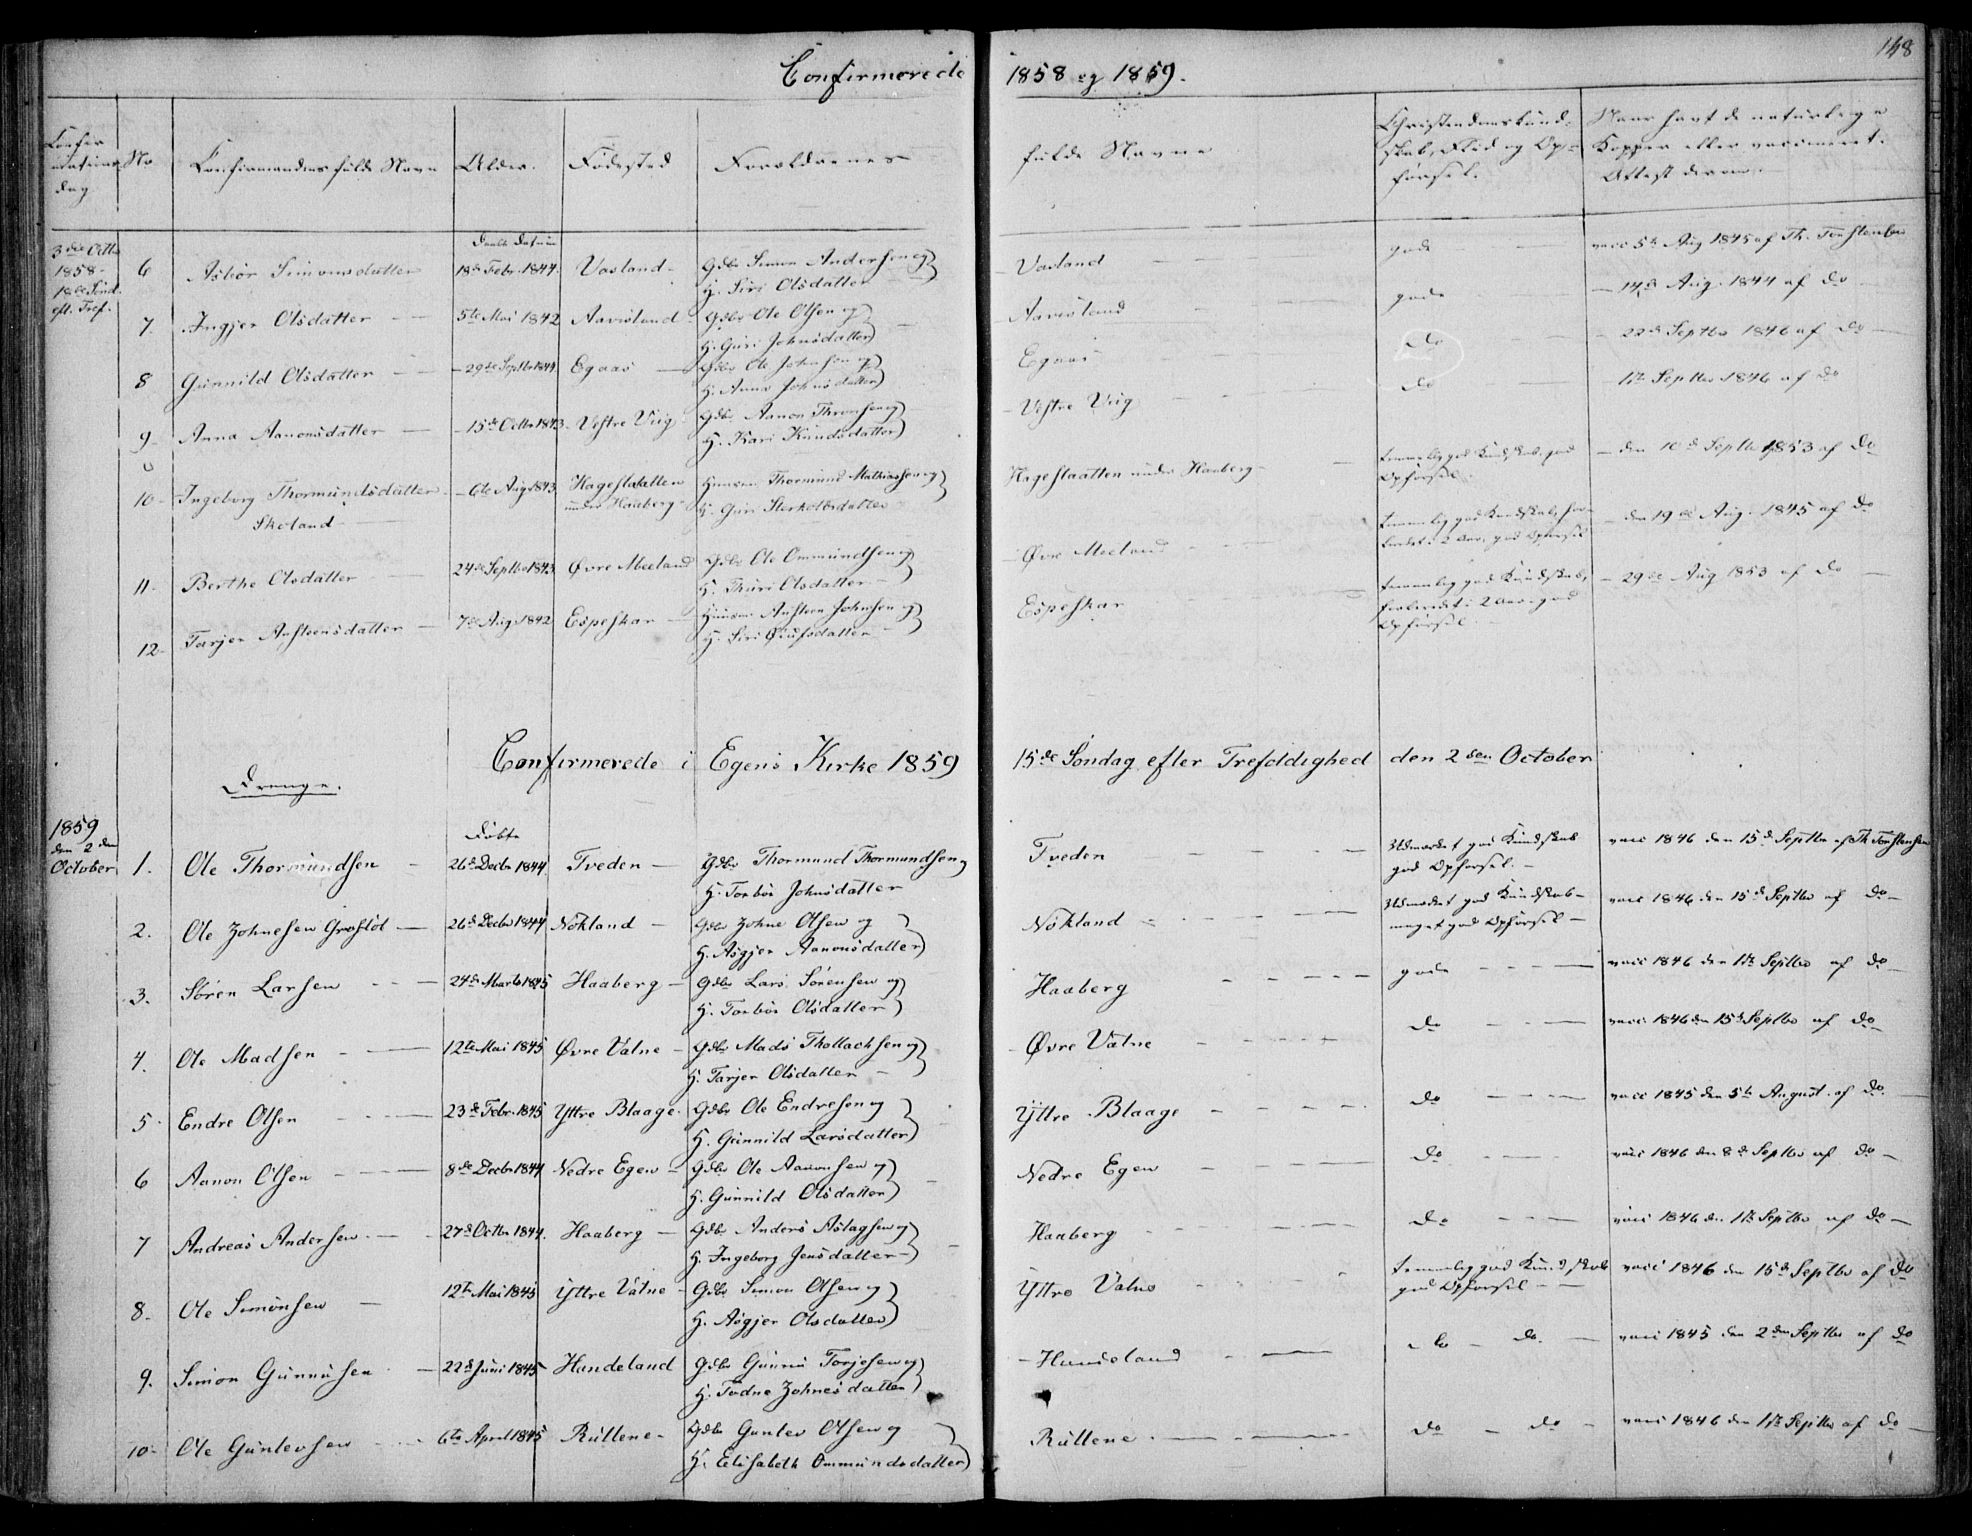 148
Confirmerede 1858 og 1859.
Confirmations Dag No Confirmandens fulde Navn Alder. Fødested Forældrenes fulde Navne Christendomskundskab, Flid og Opførsel. Naar havt de naturlige Kopper eller vaccineret. Attest derom.
3die Octbr 1858
Døbt Datum
6 Asbør Simonsdatter 18de Febr. 1844. Vasland Gdbr Simon Andersen og Vasland gode vacc 5te Aug 1845 af Th. Torstensen
H. Siri Olsdatter
7. Ingjer Olsdatter 5te Mai 1842 Aavesland Gdbr Ole Olsen og Aavesland gode 14de Aug. 1844 af do
H. Guri Johnsdatter
8 Gunnild Olsdatter 29de Septbr 1844 Egaas Gdbr Ole Johnsen og Egaas do 22de Septbr 1846 af do
H. Anna Johnsdatter
9. Anna Aanonsdatter 15de Octbr 1843 Vestre Urig Gdbr Aanon Thronsen og Vestre Urig do 17de Septbr 1846 af do
H. Kari Knudsdatter
10. Ingeborg Thormundsdatter 6te Aug 1843 Hageflaatten Huusm Thormund Mathiassen og Hageflaatten under Haaberg temmelig god Kundskab, god den 10de Septbr 1853 af do
Skoland under Haaberg H. Guri Sterkolbsdatter Opførsel
11. Berthe Olsdatter 24de Septbr 1843 Øvre Meeland Gdbr Ole Ommundsen og Øvre Meeland temmelig god Kundskab, den 19de Aug. 1845 af do
H. Thuri Olsdatter 2 Aar, god Opførsel
12. Tarjer Anstensdatter 7de Aug 1842 Espeskar Huusm Ansteen Johnsen og Espeskar temmelig god Kundskab, 29de Aug 1853 af do
H. Siri Ølufsdatter forberedt i 2 Aar. god
Opførsel.
Confirmerede i Egens Kirke 1859 15de Søndag efter Trefoldighed den 2den October
Drenge.
1859 den 2den October
Døbt
1. Ole Thormundsen 26de Decbr 1844 Tveden Gdbr Thormund Thormundsen og Tveden Udmærket god Kundskab vacc 1846 den 15de Septbr af Th Torstensen
H. Torbør Johnsdatter god Opførsel.
2. Ole Johnesen Grosløt 26de Decbr 1844 Nøkland Gdbr Johne Olsen og Nøkland Udmærket god Kundskab vacc 1846 den 15de Septbr af do
H. Asgjer Aanonsdatter meget god Opførsel
3. Søren Larsen 24de Marts 1845 Haaberg Gdbr Lars Sørensen og Haaberg gode vacc 1846 den 17de Septbr af do
H. Torbør Olsdatter
4. Ole Madsen 12te Mai 1845 Øvre Vatne Gdbr Mads Thollachsen og Øvre Vatne do vacc 1846 den 15de Septbr af do
H. Tarjer Olsdatter
5. Endre Olsen 23de Febr. 1845 Yttre Blaage Gdbr Ole Endresen og Yttre Blaage do vacc 1845 den 5te August af do
H. Gunnild Larsdatter
6 Aanon Olsen 8de Decbr 1844 Nedre Egen Gdbr Ole Aanonsen og Nedre Egen do vacc 1846 den 8de Septbr af do
H. Gunnild Olsdatter
7 Andreas Andersen 27de Octbr 1844. Haaberg Gdbr Anders Aslagsen og Haaberg do vacc 1846 den 17de Septbr af do
H. Ingeborg Jensdatter
8. Ole Simonsen 12te Mai 1845 Yttre Vatne Gdbr Simon Olsen og Yttre Vatne temmelig god Kundskab vacc 1846 den 15de Septbr af do
H. Asgjer Olsdatter god Opførsel
9. Simon Gunnusen 22de Juni 1845 Hundeland Gdbr Gunnu Torjesen og Hundeland do do vacc 1845 den 2den Septbr af do
H. Todne Johnesdatter
10. Ole Gunlevsen 6te April 1845 Rullene Gdbr Gunlev Olsen og Rullene do do vacc 1846 den 17de Septbr af do
H. Elisabeth Ommundsdatter